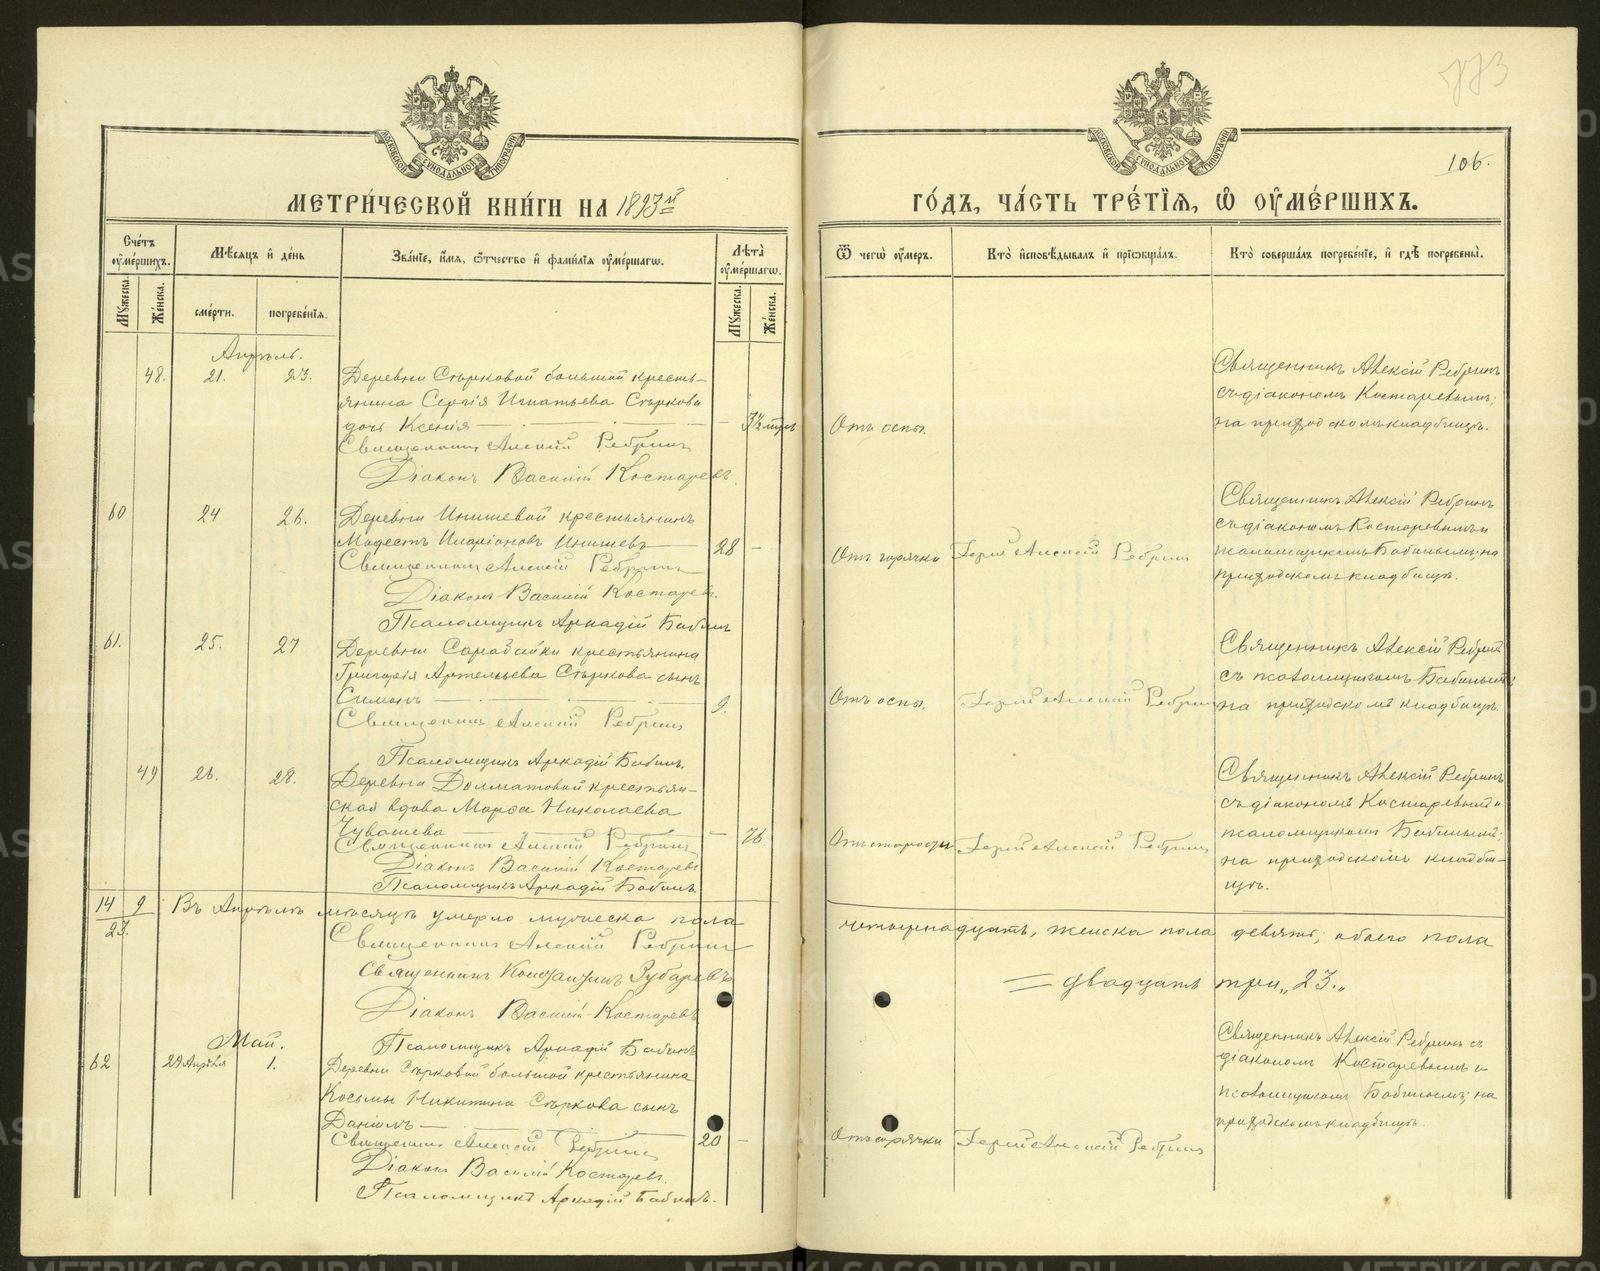 773
106.
МЕТРИ́ЧЕСКОЙ КНИ́ГИ НА 1893й
ГО́ДЪ, ЧА́СТЬ ТРЕ́ТІЯ, Ѡ ОУМЕ́РШИХЪ.
Сче́тъ оуме́ршихъ.
Мѣ́сяцъ и день
Зва́ніе, и́мя, ѻтчество и фами́лія оуме́ршагѡ.
Лѣта̀ оуме́ршагѡ.
Ѿ чегѡ̀ оу́меръ.
Кто̀ исповѣ́дывалъ и пріѡбща́лъ.
Кто̀ соверша́лъ погребе́ніе, и гдѣ̀ погребены̀.
Мꙋ́жеска.
Же́нска.
сме́рти.
погребе́нія.
Мꙋ́жеска.
Же́нска.
Апрѣль.
48. 21. 23. Деревни Стерковой большой кресть-
янина Сергія Игнатьева Стеркова
дочь Ксенія — 3½ мѣс
Священникъ Алексій Ребринъ
Діаконъ Василій Костаревъ.
Отъ оспы.
Священникъ Алексій Ребринъ
съ діакономъ Костаревымъ;
на приходскомъ кладбищѣ.
60 24 26. Деревни Инишевой крестьянинъ
Модестъ Иларіоновъ Инишевъ — 28 —
Священникъ Алексій Ребринъ
Діаконъ Василій Костаревъ.
Псаломщикъ Аркадій Бабинъ
Отъ горячки
Іерей Алексій Ребринъ
Священникъ Алексій Ребринъ
съ діакономъ Костаревымъ и
псаломщикомъ Бабинымъ; на
приходскомъ кладбищѣ.
61. 25. 27 Деревни Сарабайки крестьянина
Григорія Артемьева Стеркова сынъ
Симонъ — 9.
Священникъ Алексій Ребринъ
Псаломщикъ Аркадій Бабинъ.
Отъ оспы.
Іерей Алексій Ребринъ
Священникъ Алексій Ребринъ
съ псаломщикомъ Бабинымъ;
на приходскомъ кладбищѣ.
49 26. 28. Деревни Долматовой крестьян-
ская вдова Марѳа Николаева
Чувашева — 76.
Священникъ Алексій Ребринъ
Діаконъ Василій Костаревъ
Псаломщикъ Аркадій Бабинъ.
Отъ старости
Іерей Алексій Ребринъ
Священникъ Алексій Ребринъ
съ діакономъ Костаревымъ и
псаломщикомъ Бабинымъ;
на приходскомъ кладби-
щѣ.
14 9 Въ Апрѣлѣ мѣсяцѣ умерло мужеска пола
23.
четырнадцать, женска пола девять; обоего пола
= двадцать три „23.„
Священникъ Алексій Ребринъ
Священникъ Константинъ Зубаревъ
Діаконъ Василій Костаревъ
Псаломщикъ Аркадій Бабинъ
Май.
62 29 Апрѣля 1. Деревни Стерковой большой крестьянина
Косьмы Никитина Стеркова сынъ
Даніилъ — 20 —
Священникъ Алексій Ребринъ
Діаконъ Василій Костаревъ
Псаломщикъ Аркадій Бабинъ.
Отъ горячки
Іерей Алексій Ребринъ
Священникъ Алексій Ребринъ съ
діакономъ Костаревымъ и
псаломщикомъ Бабинымъ; на
приходскомъ кладбищѣ.
METRIKI.GASO-URAL.RU